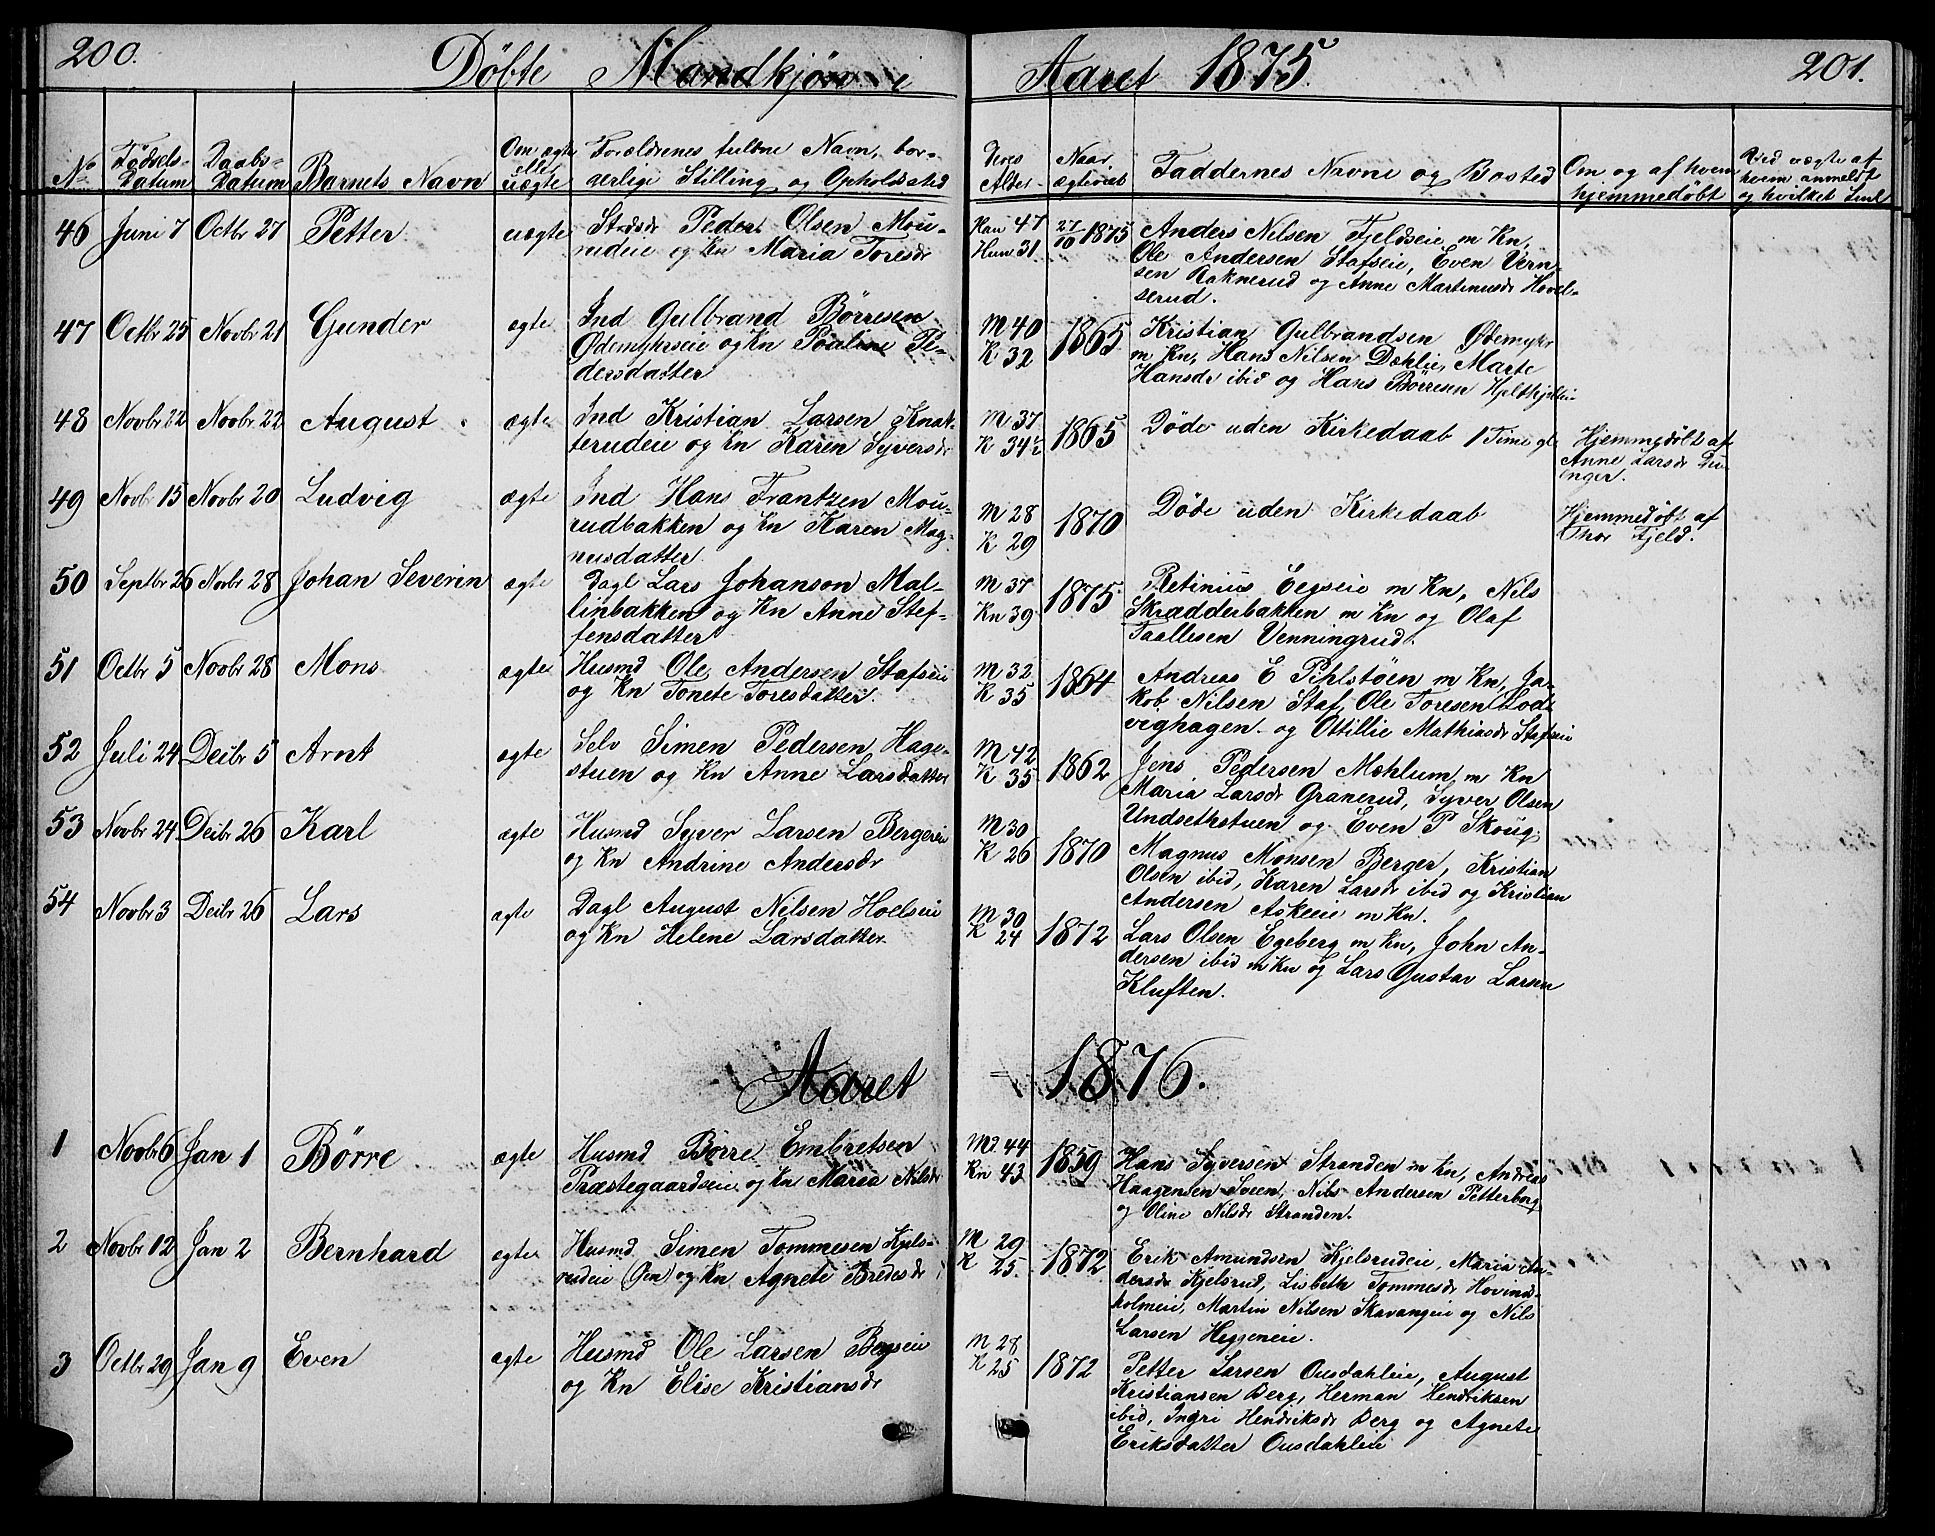 200.
Döbte Mandkjøn i Aaret 1875.
201.
No Fødsels-Datum Daabs-Datum Barnets Navn Om ægte elle uægte Forældrenes fuldne Navn, bor-
gerlige Stilling og Opholdsted Deres Alder Naar ægteviet Faddernes Navne og Bosted Om og af hvem hjemmedøbt Ved uægte af hvem anmeldt og hvilket
46 Juni 7 Octbr 27 Petter uægte Peder Olsen Mou-
rudeie og Kn Maria Toresdr
Han 47
Hun 31
27/10 1875
Anders Nilsen Fjeldseie m Kn,
Ole Andersen Stafseie, Even Vern-
sen Raknerud og Anne Martinusdr Hovel-
serud.
47 Octbr 25 Novbr 21 Gunder ægte Ind Gulbrand Börresen
Ødemykseie og Kn Pouline Pe-
dersdatter
M 40
K 32
1865
Kristian Gulbrandsen Ødemyhr
m Kn, Hans Nilsen Dæhlie, Marte
Hansdr ibid og Hans Börresen
48 Novbr 22 Novbr 22 August ægte Ind Kristian Larsen Knat-
terudeie og Kn Karen Syversdr
M 37
K 34½
1865
Døde uden Kirkedaab 1 Time gl
Hjemmedöbt af
Anne Larsdr
49 Novbr 15 Novbr 20 Ludvig ægte Ind Hans Frantzen Mou-
rudbakken og Kn Karen Mag-
nusdatter
M 28
K 29
1870
Døde uden Kirkedaab
Hjemmedöbt af
Thor Fjeld.
50 Septbr 26 Novbr 28 Johan Severin ægte Dagl Lars Johanson Mal-
linbakken og Kn Anne Stef-
fensdatter
M 37
Kn 39
1875
Petinius Eegseie m Kn, Nils
Skrædderbakken m Kn og Olaf
Taallesen Venningrud.
51 Octbr 5 Novbr 28 Mons ægte Husmd Ole Andersen Stafseie
og Kn Tonete Toresdatter.
M 32
K 35
1864
Andreas E Pihlstøen m Kn, Ja-
kob Nilsen Staf, Ole Toresen Lod-
veghagen og Ottillie Mathiasdr Stafseie
52 Juli 24 Decbr 5 Arnt ægte Selv Simen Pedersen Hage-
stuen og Kn Anne Larsdatter
M 42
K 35
1862
Jens Pedersen Mæhlum m Kn
Maria Larsdr Granerud, Syver Olsen
Undsethstuen og Even P Skoug.
53 Novbr 24 Decbr 26 Karl ægte Husmd Syver Larsen Bergerie
og Kn Andrine Andersdr
M 30
K 26
1870
Magnus Monsen Berger, Kristian
Olsen ibid, Karen Larsdr ibid og Kristian
Andersen Askeeie m Kn.
54 Novbr 3 Decbr 26 Lars ægte Dagl August Nilsen Hoelseie
og Kn Helene Larsdatter
M 30
K 24
1872
Lars Olsen Egeberg m Kn, John An-
dersen ibid m Kn og Lars Gustav Larsen
Kluften.
Aaret 1876.
1 Novbr 6 Jan 1 Börre ægte Husmd Börre Embretsen
Præstegaardseie og Kn Maria Nilsdr
Md 44
Kn 43
1859
Hans Syversen Stranden m Kn, Andreas
Haagensen Sveen, Nils Andersen Petterborg
og Oline Nilsdr Stranden.
2 Novbr 12 Jan 2 Bernhard ægte Husmd Simen Tommesen Kjels-
rudeie og Kn Agnete Bredesdr
M 29
K 25
1872
Erik Amundsen Kjelsrudeie, Maria An-
dersdr Kjelsrud, Lisbeth Tommesdr Hovinds-
holmeie, Martin Nilsen Skavangeie og Nils
Larsen Heggeneie.
3 Octbr 29 Jan 9 Even ægte Husmd Ole Larsen Bergseie
og Kn Elise Kristiansdr
M 28
K 25
1872
Petter Larsen Ousdahleie, August
Kristiansen Berg, Herman Hendriksen
ibid, Ingri Hendriksdr Berg og Agnete
Eriksdatter Ousdahleie